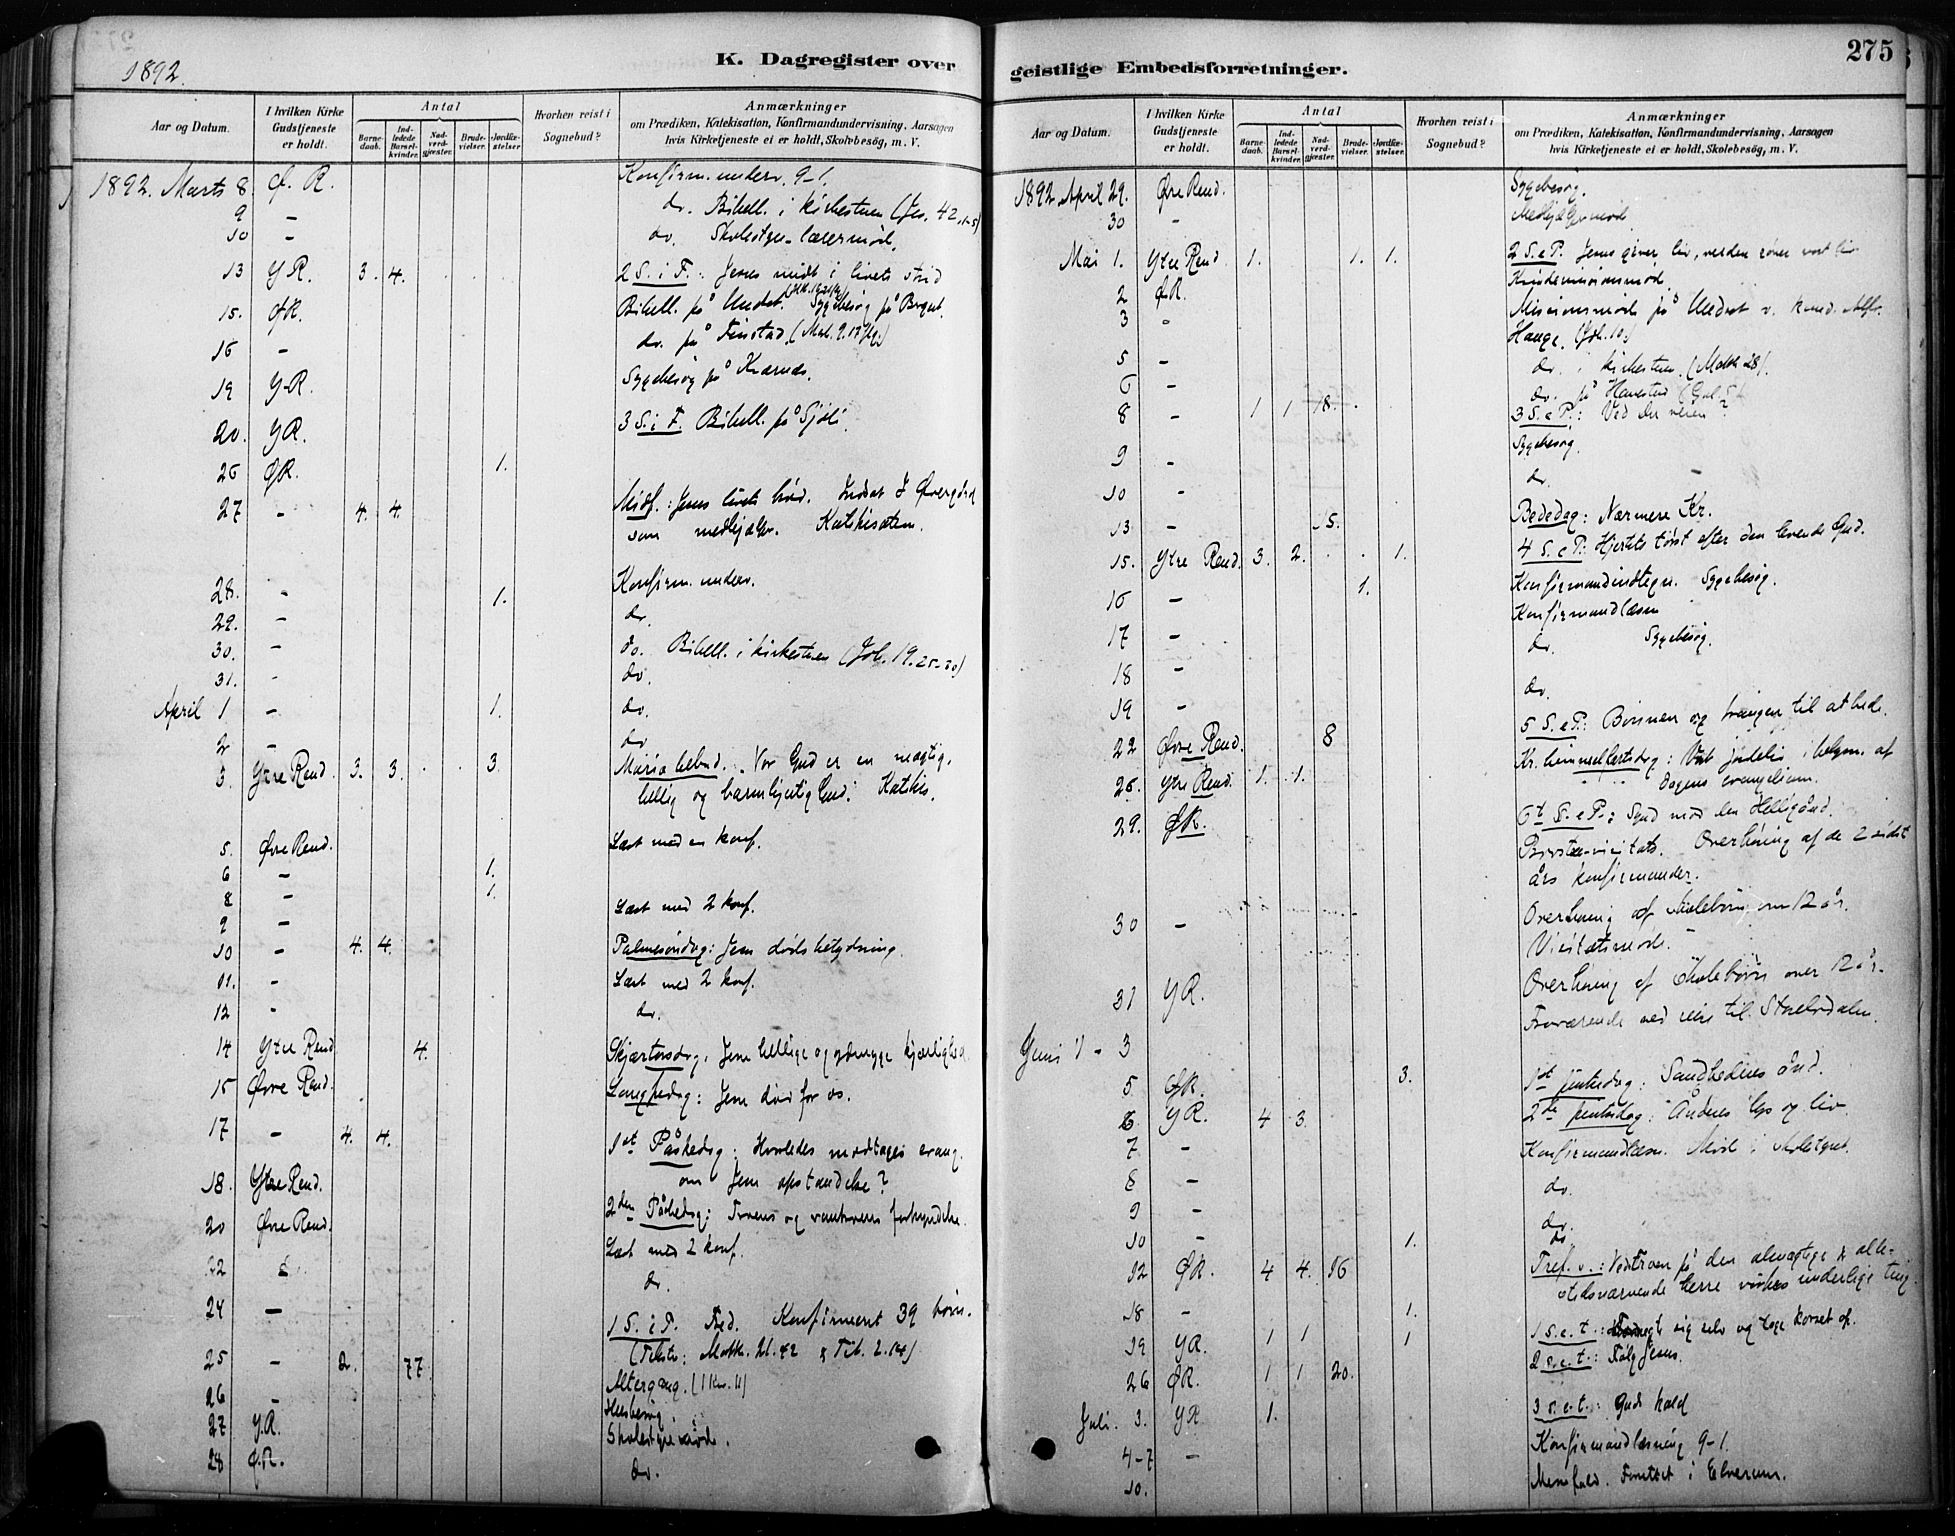 1892.
K. Dagregister over
Aar og Datum. I hvilken Kirke Gudstjeneste er holdt. Antal Barnedaab. Indledede Barselkvinder. Nadverdgjester. Brudevielser. Jordfæstelser. Hvorhen reist i Sognebud? Anmærkninger om Prædiken, Katekisation, Konfirmandundervisning, Aarsagen hvis Kirketjeneste ei er holdt, Skolebesøg, m. V.
1892. Marts 8. Ø. R. Konfirm. underv. 9-1.
9 - do. Bibell. i kirkestuen (Jes. 42.1-5)
10 - do.
13 YR. 3. 4. 2 S. i F.: Jesus midt i livets strid
15. ØR. Bibell. på Undset. Sygebesøg på
16 - do. på Finstad
19 Y-R. Sygebesøg på
20. YR. 3 S. i F. Bibell. på Sjøli.
26 ØR. 1.
27 - 4. 4. Midf.: Jesus livets brød. Indsat J Øvergård
som medhjælper. Katekisation.
28. - 1. Konfirm. underv.
29. - do.
30. - do. Bibell. i kirkestuen (Joh. 19.25-30)
31. - do.
April 1 - 1. do.
2 - do
3. Ytre Rend. 3. 3. 3. Mariæ bebud. Vor Gud er en mægtig,
hellig og barmhjertig Gud. Katekis.
5. Øvre Rend. Læst med en konf.
6 - 1.
8 - 1.
9 - Læst med 2 konf.
10 - 4. 4. Palmesøndag: Jesu døds betydning.
11. - Læst med 2 konf.
12 - do.
14 Ytre Rend 4. Skjærtorsdag. Jesu hellige og ydmyge kjærlighed
15 Øvre Rend. Langfredag: Jesu død for os.
17 - 4. 4. 1st Påskedag: Hvorledes modtages evang.
om Jesu opstandelse?
18. Ytre Rend. 2den Påskedag: Troens og vantroens forkyndelse.
20 Øvre Rend. Læst med 2 konf.
22 do.
24 - 1 S. e P. Fred. Konfirmeret 39 børn.
(Tekster: Matth. 21.42 & Tit. 2.14)
25 - 2. 77. Altergang. (1 Kor. 11)
26 - Husbesøg.
27 Y.R. Skolestyremøde.
28 Ø.R. do.
geistlige Embedsforretninger.
275
Aar og Datum. I hvilken Kirke Gudstjeneste er holdt. Antal Barnedaab. Indledede Barselkvinder. Nadverdgjester. Brudevielser. Jordfæstelser. Hvorhen reist i Sognebud? Anmærkninger om Prædiken, Katekisation, Konfirmandundervisning, Aarsagen hvis Kirketjeneste ei er holdt, Skolebesøg, m. V.
1892 April 29. Øvre Rend. Sygebesøg.
30 - Medhjælpermøde
Mai 1. Ytre Rend. 1. 1. 1. 2 S. e P. Jesus giver liv, verden røver vort liv
2 ØR. Kvindemissionsmøde
3 - Missionsmøde på Undset v. kand. Alfr.
Hauge. (Joh. 10.)
5 - do. i kirkestuen. (Matth 28).
6 - do. på Hanestad (Gal. 5)
8 - 1 1 18. 3 S. e P.:
9 - Sygebesøg.
10 - do.
13 - 15. Bededag: Nærmere Kr.
15. Ytre Rend. 3. 2. 1. 4 S. e P.: Hjertets tørst efter den levende Gud.
16 - 1. Konfirmandindtegn. Sygebesøg.
17 - Konfirmandlæsn
18 - do. Sygebesøg.
19 - do.
22 Øvre Rend. 8 5 S. e P.: Bønnen og trangen til at bede.
26. Ytre Rend. 1. 1. Kr. himmelfartsdag: Vort jordeliv i belysn. af
dagens evangelium.
29. ØR. 6t S. e P.: Synd mod den Helligånd.
Provstevisitats. Overhøring af de 2 sidst
års konfirmander.
30 - Overhøring af skolebørn om 12 år.
Visitatsmøde.
31 YR. Overhøring af skolebørn over 12 år.
Juni 1 - 3 Fraværende ved reise til
5 ØR. 3. 1st pintsedag: Sandhedens ånd.
6 YR. 4 3. 2de pintsedag. Åndens lys og liv.
7 - Konfirmandlæsn. Møde i skolestyret.
8 - do.
9 - do.
10 - 1. do
12 ØR. 4 4. 16 Tref. s.: Ved Troen på den almægtige & alle-
stedsnærværende herre virkes underlige ting.
18 - 1.
19 YR. 1 1 1 1 S. e. t.: Fornegte sig selv og tage korset op.
26 ØR. 1 1 20. 2 S. e. t.: Følg Jesus.
Juli. 3. YR 1. 3 S. e. t.: Guds kald
4-7 - Konfirmandlæsning 9-1.
10. Messefald. Forrettet i Elverum.